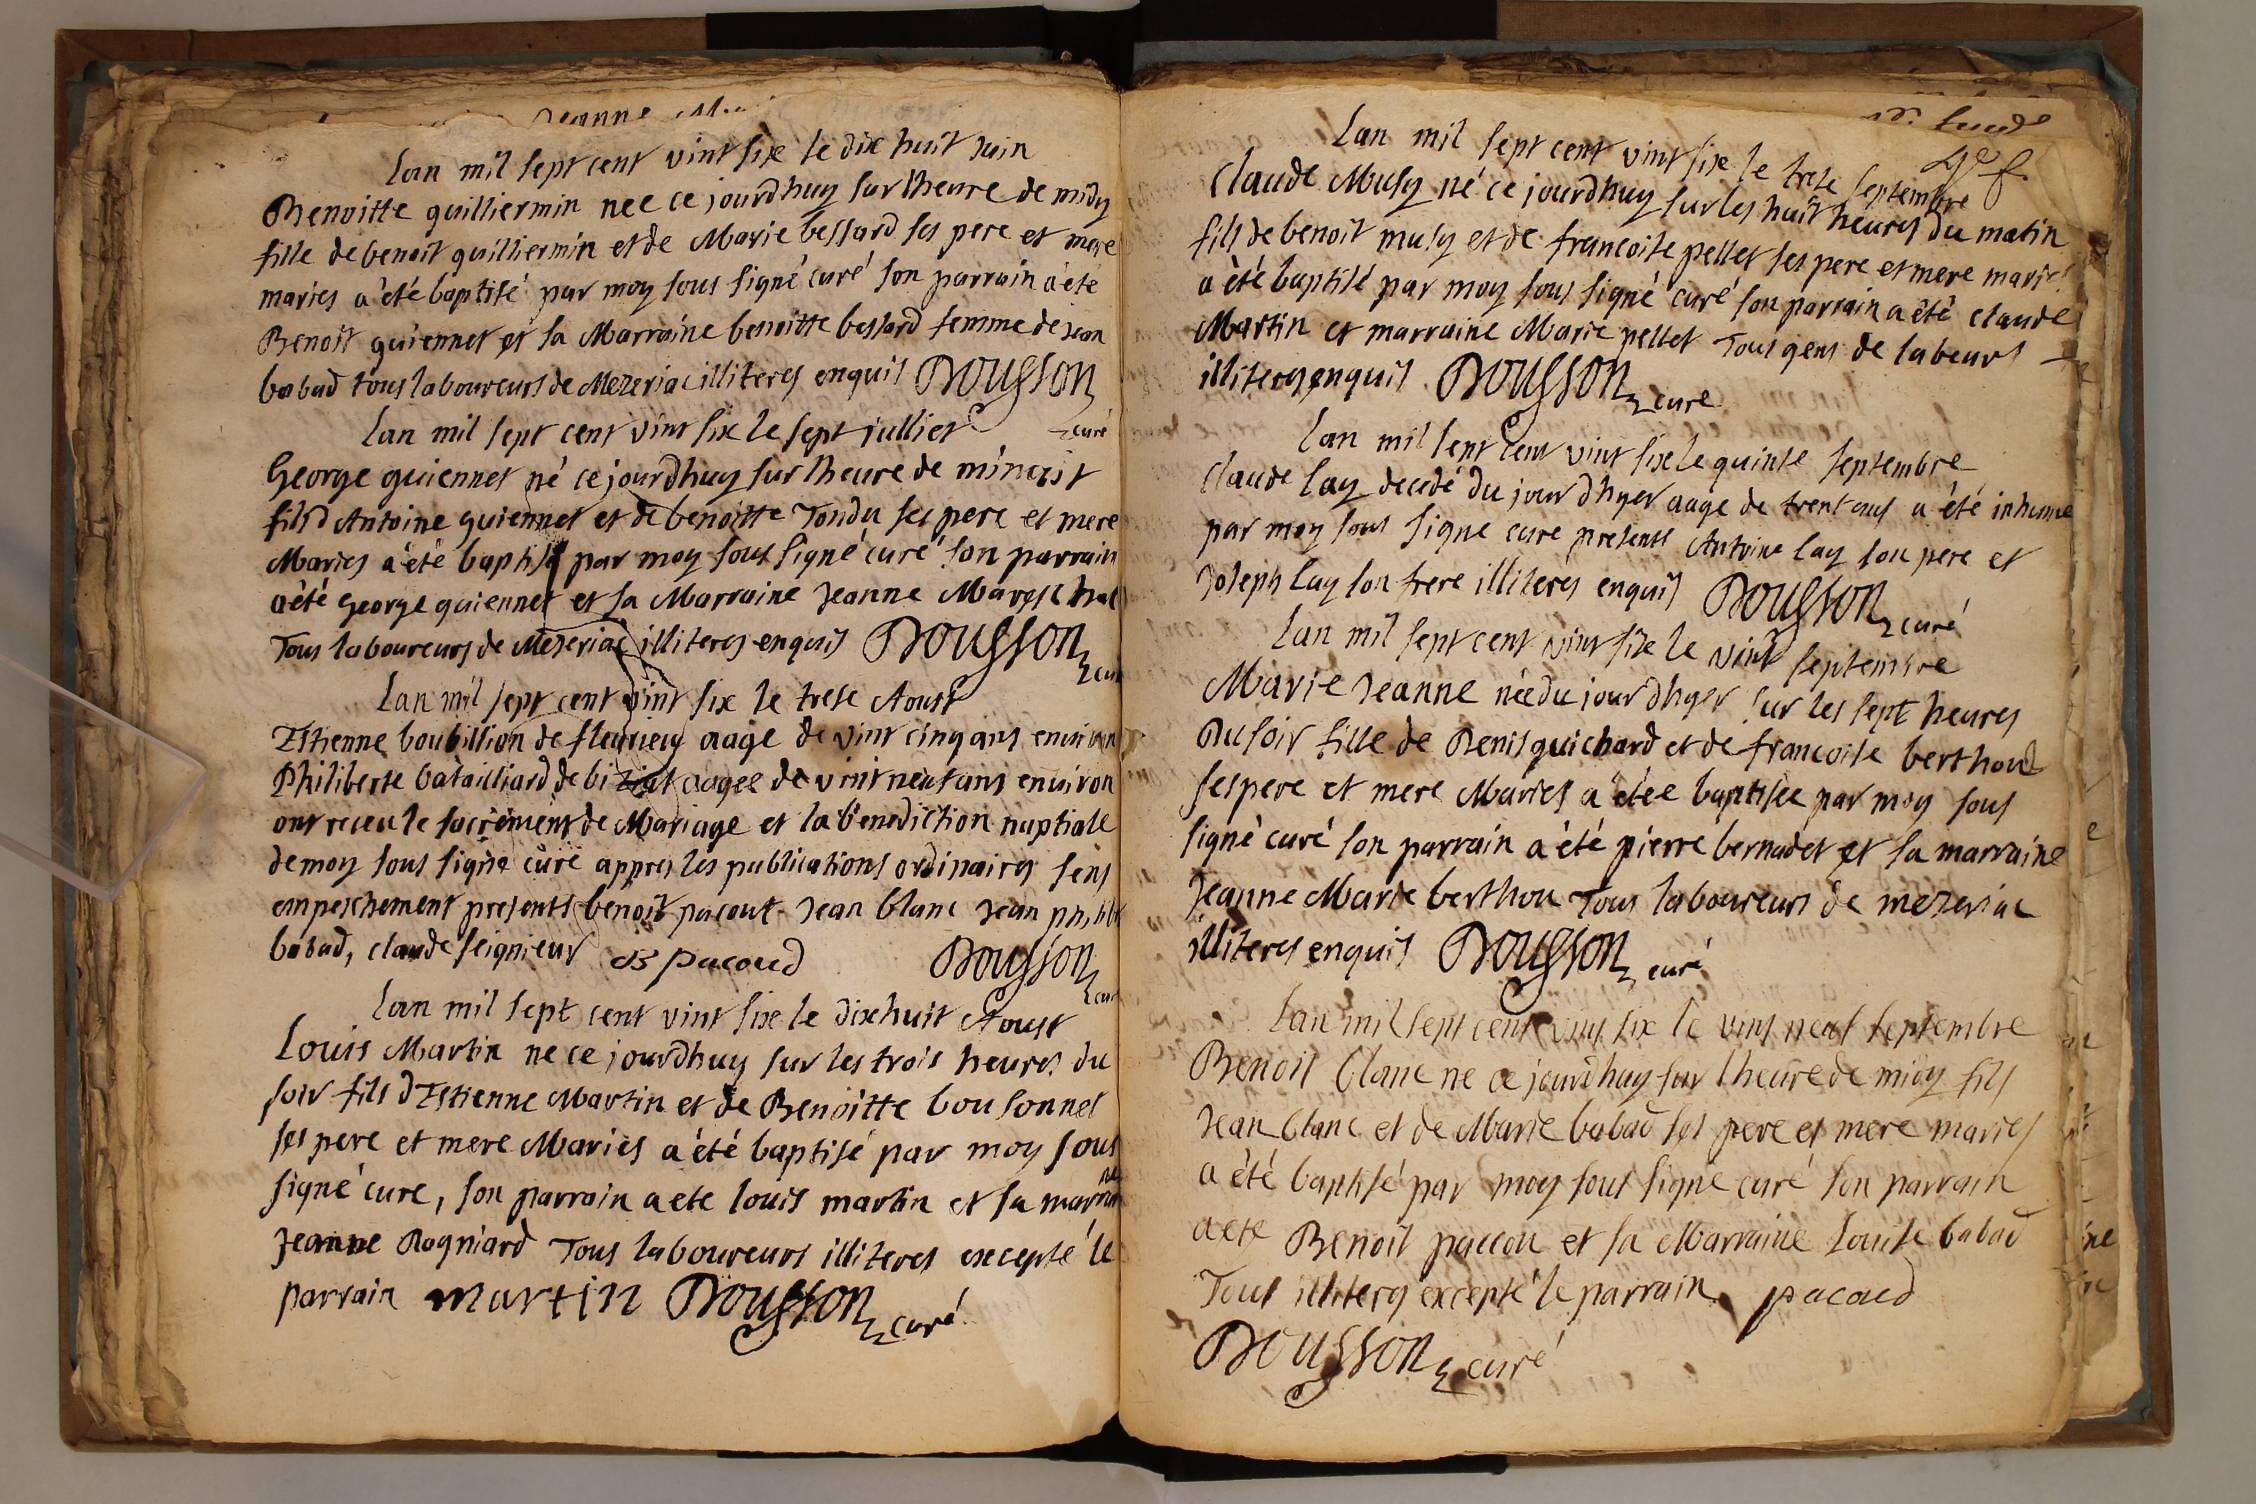 Jeanne
Lan mil sept cent vint six le dix huit Juin
Benoitte guilliermin nee ce jourdhuy sur lheure de midy
fille de benoit guilliermin et de Marie bessard ses pere et mere
maries a été baptisé par moy sous signé curé son parrain a été
Benoit guiennet et sa Marraine benoitte bessard femme de Jean
babad tous laboureurs de Mezeriac illiteres enquis Dousson
curé
Lan mil sept cent vint six le sept juillier
George guiennet né ce jourdhuy sur lheure de minoist
fils d Antoine guiennet et de benoitte Tondu ses pere et mere
Maries a été baptisé par moy sous signé curé son parrain
a été George guiennet et sa Marraine Jeanne Mareschal
Tous laboureurs de Mezeriac illiteres enquis Dousson
Lan mil sept cent vint six le trese Aoust
Estienne boubillion de fleurieuy aage de vint cinq ans environ
Philiberte batailliard de biziat aagee de vint neuf ans environ
ont receu le sacrement de Mariage et la benediction nuptiale
de moy sous signé curé appres les publications ordinaires sens
empeschement presents benoit pacout Jean blanc Jean philib
babad, claude seignieur B pacoud Dousson
Lan mil sept cent vint six le dix huit Aoust
Louis Martin ne ce jourdhuy sur les trois heures du
soir fils d Estienne Martin et de Benoitte bousonnet
ses pere et mere Maries a été baptisé par moy sous
signé cure, son parrain a ete louis martin et sa marraine
Jeanne Rogniard Tous laboureurs illiteres excepté le
parrain martin Dousson curé
Lan mil sept cent vint six le trese septembre
Claude Musy né ce jourdhuy sur les huit heures du matin
fils de benoit musy et de francoise pellet ses pere et mere maries
a été baptisé par moy sous signé curé son parrain a été claude
Martin et marraine Marie pellet Tous gens de labeurs
illiteres enquis Dousson cure
Lan mil sept cent vint six le quinse septembre
Claude lay decedé du jour dhyer aage de trent ans a été inhumé
par moy sous signe cure presents Antoine lay son pere et
Joseph lay son frere illiteres enquis Dousson curé
Lan mil sept cent vint six le vint septembre
Marie Jeanne née du jour dhyer sur les sept heures
Du soir fille de Denis guichard et de francoise berthoud
ses pere et mere Maries a étée baptisée par moy sous
signé curé son parrain a été pierre bernadet et sa marraine
Jeanne Marie berthou Tous laboureurs de mezeriac
illiteres enquis Dousson curé
Lan mil sept cent vint six le vint neuf septembre
Benoit Clanc ne ce jourdhuy sur lheure de midy fils
Jean blanc et de Marie babad ses pere et mere maries
a été baptisé par moy sous signe curé son parrain
a ete Benoit paccou et sa Marraine Louise babad
Tous illiteres excepté le parrain pacoud
Dousson curé